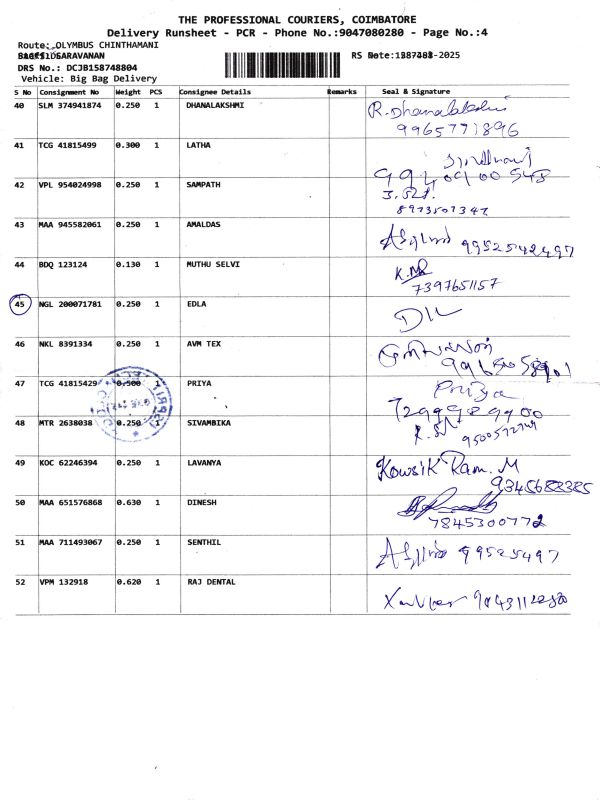 THE PROFESSIONAL COURIERS, COIMBATORE
Delivery Runsheet - PCR - Phone No.:9047080280 - Page No.:4
Route: OLYMBUS CHINTHAMANI
SARAVANAN
DRS No.: DCJB158748804
Vehicle: Big Bag Delivery
S No Consignment No Weight PCS Consignee Details Remarks Seal & Signature
40 SLM 374941874 0.250 1 DHANALAKSHMI R. Dhanalakshmi
9965771896
41 TCG 41815499 0.300 1 LATHA
42 VPL 954024998 0.250 1 SAMPATH
8973507347
43 MAA 945582061 0.250 1 AMALDAS
9952542497
44 BDQ 123124 0.130 1 MUTHU SELVI
7397651157
45 NGL 200071781 0.250 1 EDLA
46 NKL 8391334 0.250 1 AVM TEX
47 TCG 41815429 0.500 1 PRIYA Priya
7299989900
48 MTR 2638038 0.250 1 SIVAMBIKA
49 KOC 62246394 0.250 1 LAVANYA Kowsik Ram. M
9345688385
50 MAA 651576868 0.630 1 DINESH
7845300772
51 MAA 711493067 0.250 1 SENTHIL 99525497
52 VPM 132918 0.620 1 RAJ DENTAL